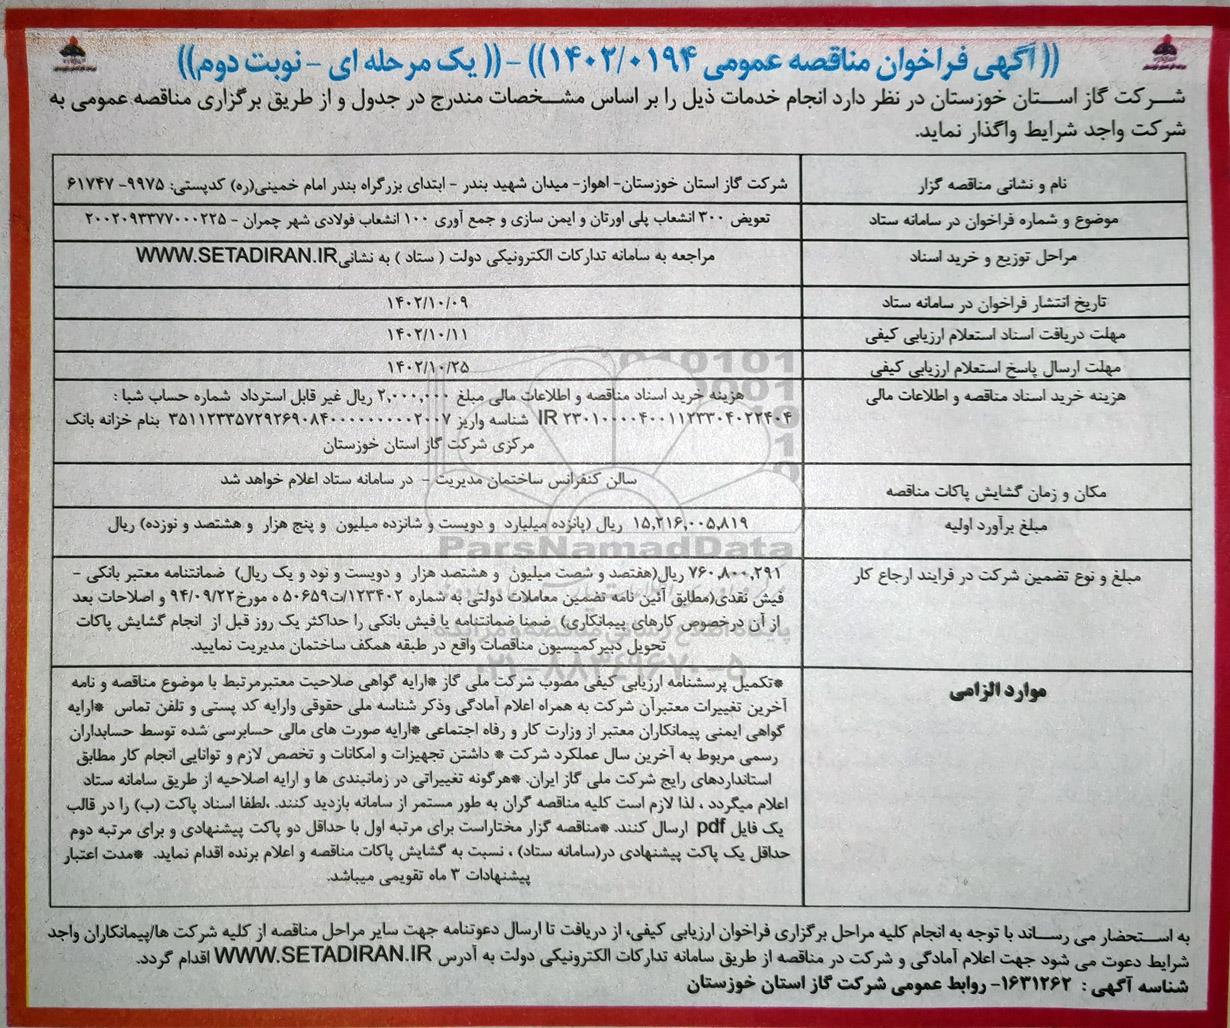 ((آگهی فراخوان مناقصه عمومی ۱۴۰۲/۰۱۹۴)) - ((یک مرحله ای - نوبت دوم))
شرکت گاز استان خوزستان در نظر دارد انجام خدمات ذیل را بر اساس مشخصات مندرج در جدول و از طریق برگزاری مناقصه عمومی به
شرکت واجد شرایط واگذار نماید.
نام و نشانی مناقصه گزار
شرکت گاز استان خوزستان- اهواز- میدان شهید بندر - ابتدای بزرگراه بندر امام خمینی(ره) کدپستی: ۹۹۷۵- ۶۱۷۴۷
موضوع و شماره فراخوان در سامانه ستاد
تعویض ۳۰۰ انشعاب پلی اورتان و ایمن سازی و جمع آوری ۱۰۰ انشعاب فولادی شهر چمران - ۲۰۰۲۰۹۳۳۷۷۰۰۰۲۲۵
مراحل توزیع و خرید اسناد
مراجعه به سامانه تدارکات الکترونیکی دولت ( ستاد ) به نشانی WWW.SETADIRAN.IR
تاریخ انتشار فراخوان در سامانه ستاد
۱۴۰۲/۱۰/۰۹
مهلت دریافت اسناد استعلام ارزیابی کیفی
۱۴۰۲/۱۰/۱۱
مهلت ارسال پاسخ استعلام ارزیابی کیفی
۱۴۰۲/۱۰/۲۵
هزینه خرید اسناد مناقصه و اطلاعات مالی
هزینه خرید اسناد مناقصه و اطلاعات مالی مبلغ ۲,۰۰۰,۰۰۰ ریال غیر قابل استرداد شماره حساب شبا :
IR ۲۳۰۱۰۰۰۰۴۰۰۱۱۲۳۳۰۴۰۲۲۴۰۴ شناسه واریز ۳۵۱۱۲۳۳۵۷۲۹۲۶۹۰۸۴۰۰۰۰۰۰۰۰۰۰۲۰۰۷ بنام خزانه بانک
مرکزی شرکت گاز استان خوزستان
مکان و زمان گشایش پاکات مناقصه
سالن کنفرانس ساختمان مدیریت - در سامانه ستاد اعلام خواهد شد
مبلغ برآورد اولیه
۱۵,۲۱۶,۰۰۵,۸۱۹ ریال (پانزده میلیارد و دویست و شانزده میلیون و پنج هزار و هشتصد و نوزده) ریال
مبلغ و نوع تضمین شرکت در فرایند ارجاع کار
۷۶۰,۸۰۰,۲۹۱ ریال(هفتصد و شصت میلیون و هشتصد هزار و دویست و نود و یک ریال) ضمانتنامه معتبر بانکی -
فیش نقدی(مطابق آئین نامه تضمین معاملات دولتی به شماره ۱۲۳۴۰۲/ت۵۰۶۵۹ ه مورخ۹۴/۰۹/۲۲ و اصلاحات بعد
از آن درخصوص کارهای پیمانکاری) ضمنا ضمانتنامه یا فیش بانکی را حداکثر یک روز قبل از انجام گشایش پاکات
تحویل دبیرکمیسیون مناقصات واقع در طبقه همکف ساختمان مدیریت نمایید.
موارد الزامی
*تکمیل پرسشنامه ارزیابی کیفی مصوب شرکت ملی گاز *ارایه گواهی صلاحیت معتبرمرتبط با موضوع مناقصه و نامه
آخرین تغییرات معتبرآن شرکت به همراه اعلام آمادگی وذکر شناسه ملی حقوقی وارایه کد پستی و تلفن تماس *ارایه
گواهی ایمنی پیمانکاران معتبر از وزارت کار و رفاه اجتماعی *ارایه صورت های مالی حسابرسی شده توسط حسابداران
رسمی مربوط به آخرین سال عملکرد شرکت * داشتن تجهیزات و امکانات و تخصص لازم و توانایی انجام کار مطابق
استانداردهای رایج شرکت ملی گاز ایران. *هرگونه تغییراتی در زمانبندی ها و ارایه اصلاحیه از طریق سامانه ستاد
اعلام میگردد ، لذا لازم است کلیه مناقصه گران به طور مستمر از سامانه بازدید کنند. ،لطفا اسناد پاکت (ب) را در قالب
یک فایل pdf ارسال کنند. *مناقصه گزار مختاراست برای مرتبه اول با حداقل دو پاکت پیشنهادی و برای مرتبه دوم
حداقل یک پاکت پیشنهادی در(سامانه ستاد) ، نسبت به گشایش پاکات مناقصه و اعلام برنده اقدام نماید. *مدت اعتبار
پیشنهادات ۳ ماه تقویمی میباشد.
به استحضار می رساند با توجه به انجام کلیه مراحل برگزاری فراخوان ارزیابی کیفی، از دریافت تا ارسال دعوتنامه جهت سایر مراحل مناقصه از کلیه شرکت ها/پیمانکاران واجد
شرایط دعوت می شود جهت اعلام آمادگی و شرکت در مناقصه از طریق سامانه تدارکات الکترونیکی دولت به آدرس WWW.SETADIRAN.IR اقدام گردد.
شناسه آگهی : ۱۶۳۱۲۶۲- روابط عمومی شرکت گاز استان خوزستان
ParsNamadData
۰۲۱-۸۸۳۴۹۶۷۰-۵